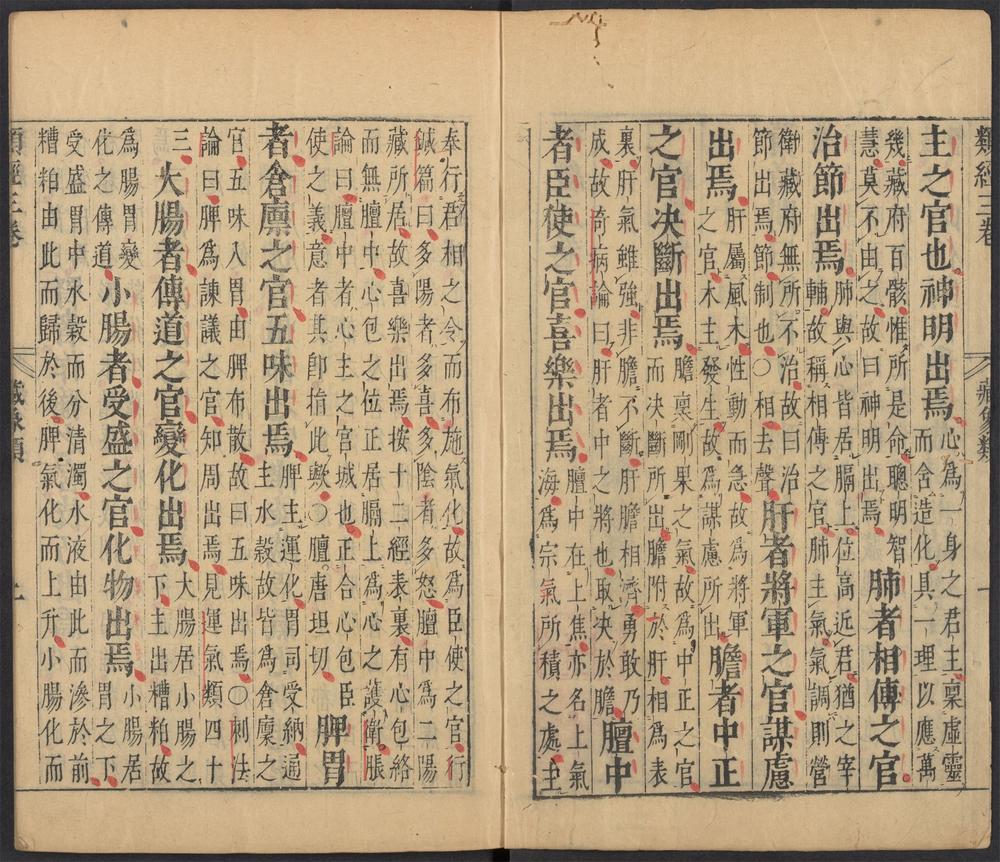 類經三卷 藏象類
主之官也神明出焉
心為一身之君主稟虛靈
而含造化具一理以應萬
幾藏府百骸惟所是命聰明智
慧莫不由之故曰神明出焉
肺者相傅之官
治節出焉
肺與心皆居膈上位高近君猶之宰
輔故稱相傅之官肺主氣氣調則營
衛藏府無所不治故曰治
節出焉節制也○相去聲
肝者將軍之官謀慮
出焉
肝屬風木性動而急故為將軍
之官木主發生故為謀慮所出
膽者中正
之官決斷出焉
膽稟剛果之氣故為中正之官
而決斷所出膽附於肝相為表
裏肝氣雖強非膽不斷肝膽相濟勇敢乃
成故奇病論曰肝者中之將也取決於膽
膻中
者臣使之官喜樂出焉
膻中在上焦亦名上氣
海為宗氣所積之處主
奉行君相之令而布施氣化故為臣使之官行
鍼篇曰多陽者多喜多陰者多怒膻中為二陽
藏所居故喜樂出焉按十二經表裏有心包絡
而無膻中心包之位正居膈上為心之護衛脹
論曰膻中者心主之宮城也正合心包臣
使之義意者其卽指此歟○膻唐坦切
脾胃
者倉廩之官五味出焉
脾主運化胃司受納通
主水穀故皆為倉廩之
官五味入胃由脾布散故曰五味出焉○刺法
論曰脾為諫議之官知周出焉見運氣類四十
三
大腸者傳道之官變化出焉
大腸居小腸之
下主出糟粕故
為腸胃變
化之傳道
小腸者受盛之官化物出焉
小腸居
胃之下
受盛胃中水穀而分清濁水液由此而滲於前
糟粕由此而歸於後脾氣化而上升小腸化而
類經三卷 藏象類